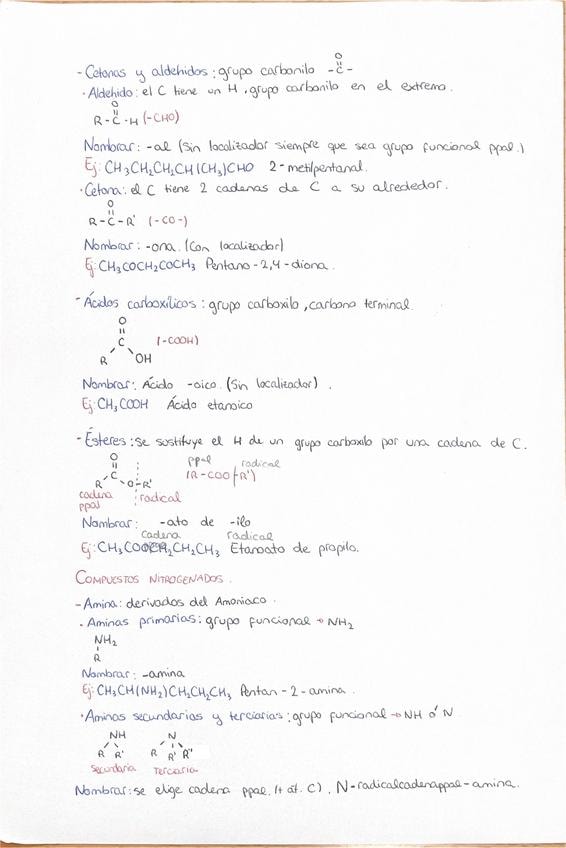 O
- Cetonas y aldehidos : grupo carbonilo -C-
· Aldehido: el C tiene un H, grupo carbonilo en el extremo.
O
R - C - H (-CHO)
Nombrar: -al (Sin localizador siempre que sea grupo funcional ppal.)
Ej: CH₃CH₂CH₂CH(CH₃)CHO 2-metilpentanal.
· Cetona: el C tiene 2 cadenas de C a su alrededor.
O
R - C - R' (-CO-)
Nombrar: -ona. (Con localizador)
Ej: CH₃COCH₂COCH₃ Pentano-2,4-diona.
- Ácidos carboxílicos : grupo carboxilo, carbono terminal.
O
C (-COOH)
R OH
Nombrar: Ácido -oico. (Sin localizador).
Ej: CH₃COOH Ácido etanoico
- Ésteres : se sustituye el H de un grupo carboxilo por una cadena de C.
O ppal radical
C (R-COO-R')
R O-R'
cadena ppal radical
Nombrar: -ato de -ilo
cadena radical
Ej: CH₃COO CH₂CH₂CH₃ Etanoato de propilo.
COMPUESTOS NITROGENADOS.
- Amina: derivados del Amoniaco.
· Aminas primarias: grupo funcional → NH₂
NH₂
R
Nombrar: -amina
Ej: CH₃CH(NH₂)CH₂CH₂CH₃ Pentan-2-amina.
· Aminas secundarias y terciarias: grupo funcional → NH ó N
NH N
R R' R R' R''
secundaria Terciaria
Nombrar: se elige cadena ppal. (+ át. C). N-radicalcadenappal-amina.